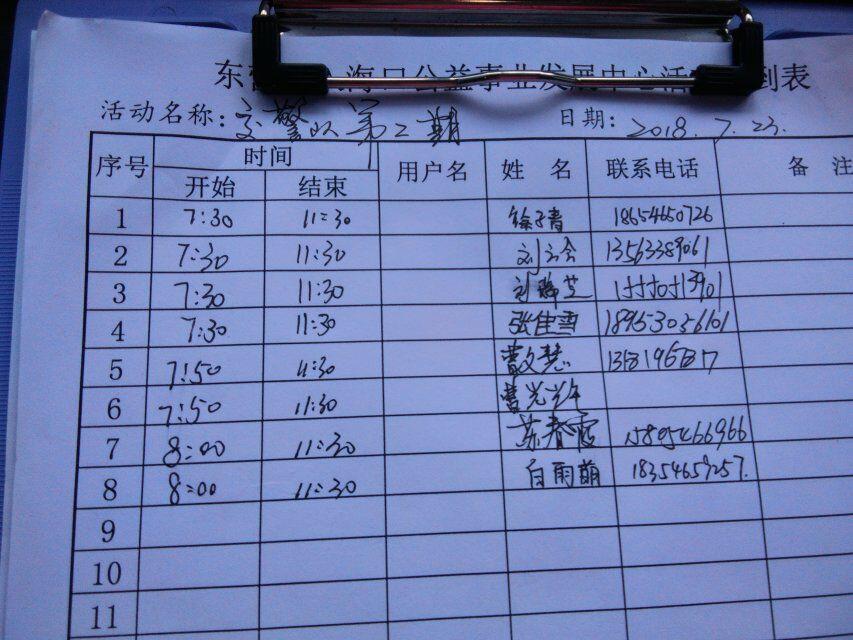 东营 海口公益事业发展中心活 到表
活动名称: 交警队第二期 日期: 2018.7.23.
序号 时间 用户名 姓名 联系电话 备注
开始 结束
1 7:30 11:30 徐子青 18654650726
2 7:30 11:30 刘 13563389061
3 7:30 11:30 刘
4 7:30 11:30 张佳雪 18953056101
5 7:50 11:30 曹文慧
6 7:50 11:30 曹光
7 8:00 11:30 苏春霞 15895466966
8 8:00 11:30 白雨萌 18354659257.
9
10
11